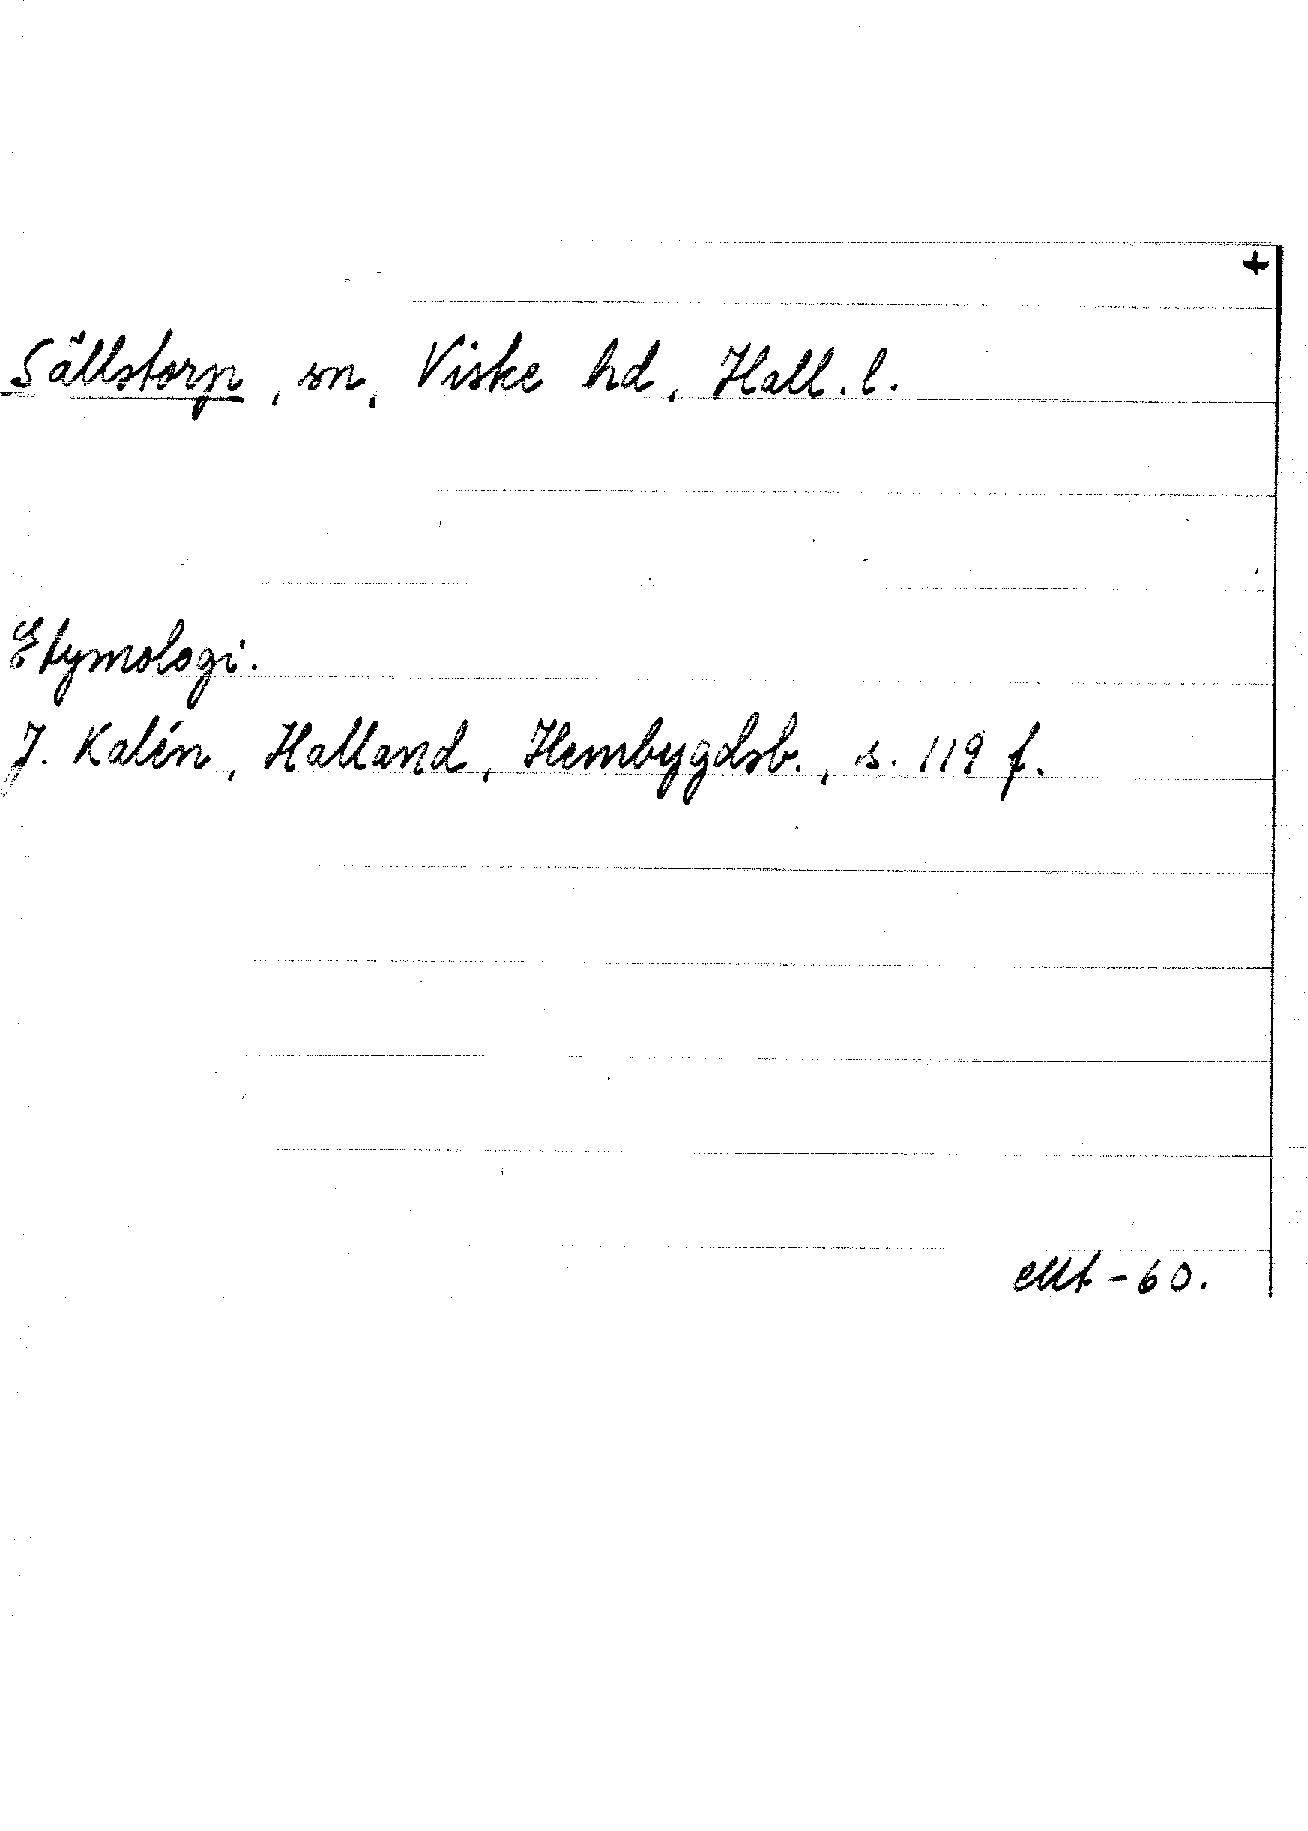 +
Sällstorp, sn, Viske hd, Hall. l.
Etymologi.
J. Kalén, Halland, Hembygdsb., s. 119 f.
-60.